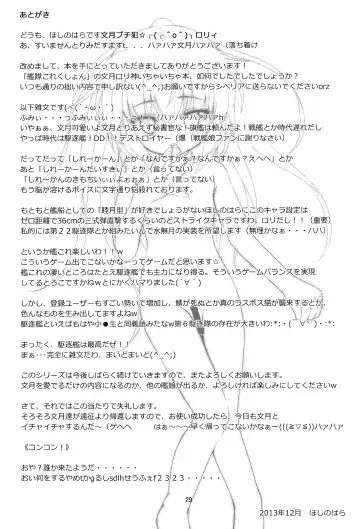 あとがき
どうも、ほしのはらです文月プチ犯☆┌(┌＾o＾)┐ロリィ
あ、すいませんとりみだすますﾋ．．．ハァハァ文月ハァハァ（落ち着け
改めまして、本を手にとっていただきましてありがとうございます！
「艦隊これくしょん」の文月ロリ神いちゃいちゃ本、如何でしたでしたでしょうか？
いつも通りの拙い内容で申し訳ない(^_^;)お願いですからシベリアに送らないでくださいorz
以下雑文です(´・ω・｀)
ふみぃ・・・っふみぃぃぃ・・・
いやぁぁ、文月可愛いよ文月とりあえず秘書官なト旗艦は頼んだよ！戦艦とか時代遅れだし
やっぱ時代は駆逐艦！DD！デストロイヤー（爆（戦艦娘ファンに謝りなさい）
だってだって「しれーかーん」とか「なんですかぁ？なんですかぁ？えへへ」とか
あと「しれーかーんだいすきぃ」とか（言ってない）
「しれーかんのきもちいぃよぉぉぉ」とか（言ってない）
もう脳が溶けるボイスに文字通り悩殺れております。
もともと艦船としての『睦月型』が好きでしょうがないほしのはらにこのキャラ設定は
ゼロ距離で36cmの三式弾直撃するくらいのどストライクキャラですわ、ロリだし！！（重要）
私的には第２２駆逐隊とか組みたいんで水無月の実装を所望します（無理かなぁ・・・ﾉﾉ）
というか艦これ楽しいわ！！ｗ
こういうゲーム出てこないかなーってゲームだと思います☆
艦これの凄いところはたとえ駆逐艦でも主力になり得る。そういうゲームバランスを実現
してるところですかねｗとにかくハマりました(´∀｀)
しかし、登録ユーザーもすごい勢いで増加し、鯖が死ぬとか真のラスボス猫が襲来するとか、
色んなものを生み出してますよねｗ
駆逐艦といえばもはや小●生と同義語みたなｗ第６駆逐隊の存在が大きいわ:*:・(￣∀￣)・:*:
まったく、駆逐艦は最高だぜ！！
まぁ・・・完全に雑文だわ、まいどまいど(^_^;)
このシリーズは今後しばらく続けていきますので、またよろしくお願いします。
文月を愛でるだけの内容になるのか、他の艦娘が出るか、よろしければ楽しみにしてくださいｗ
さて、それではこの当たりで失礼します。
そろそろ文月達が遠征より帰還しますので、お使い成功したら、今日も文月と
イチャイチャするんだ～（ゲヘへ　はぁ～～～早く帰ってこないかなぁー(((≧▽≦))ハァハァ
《コンコン！》
おや？誰か来たようだ・・・・・・
おい何をするやめtかgるしsdlhせうふぇf２３２３・・・・・
29
2013年12月　ほしのはら